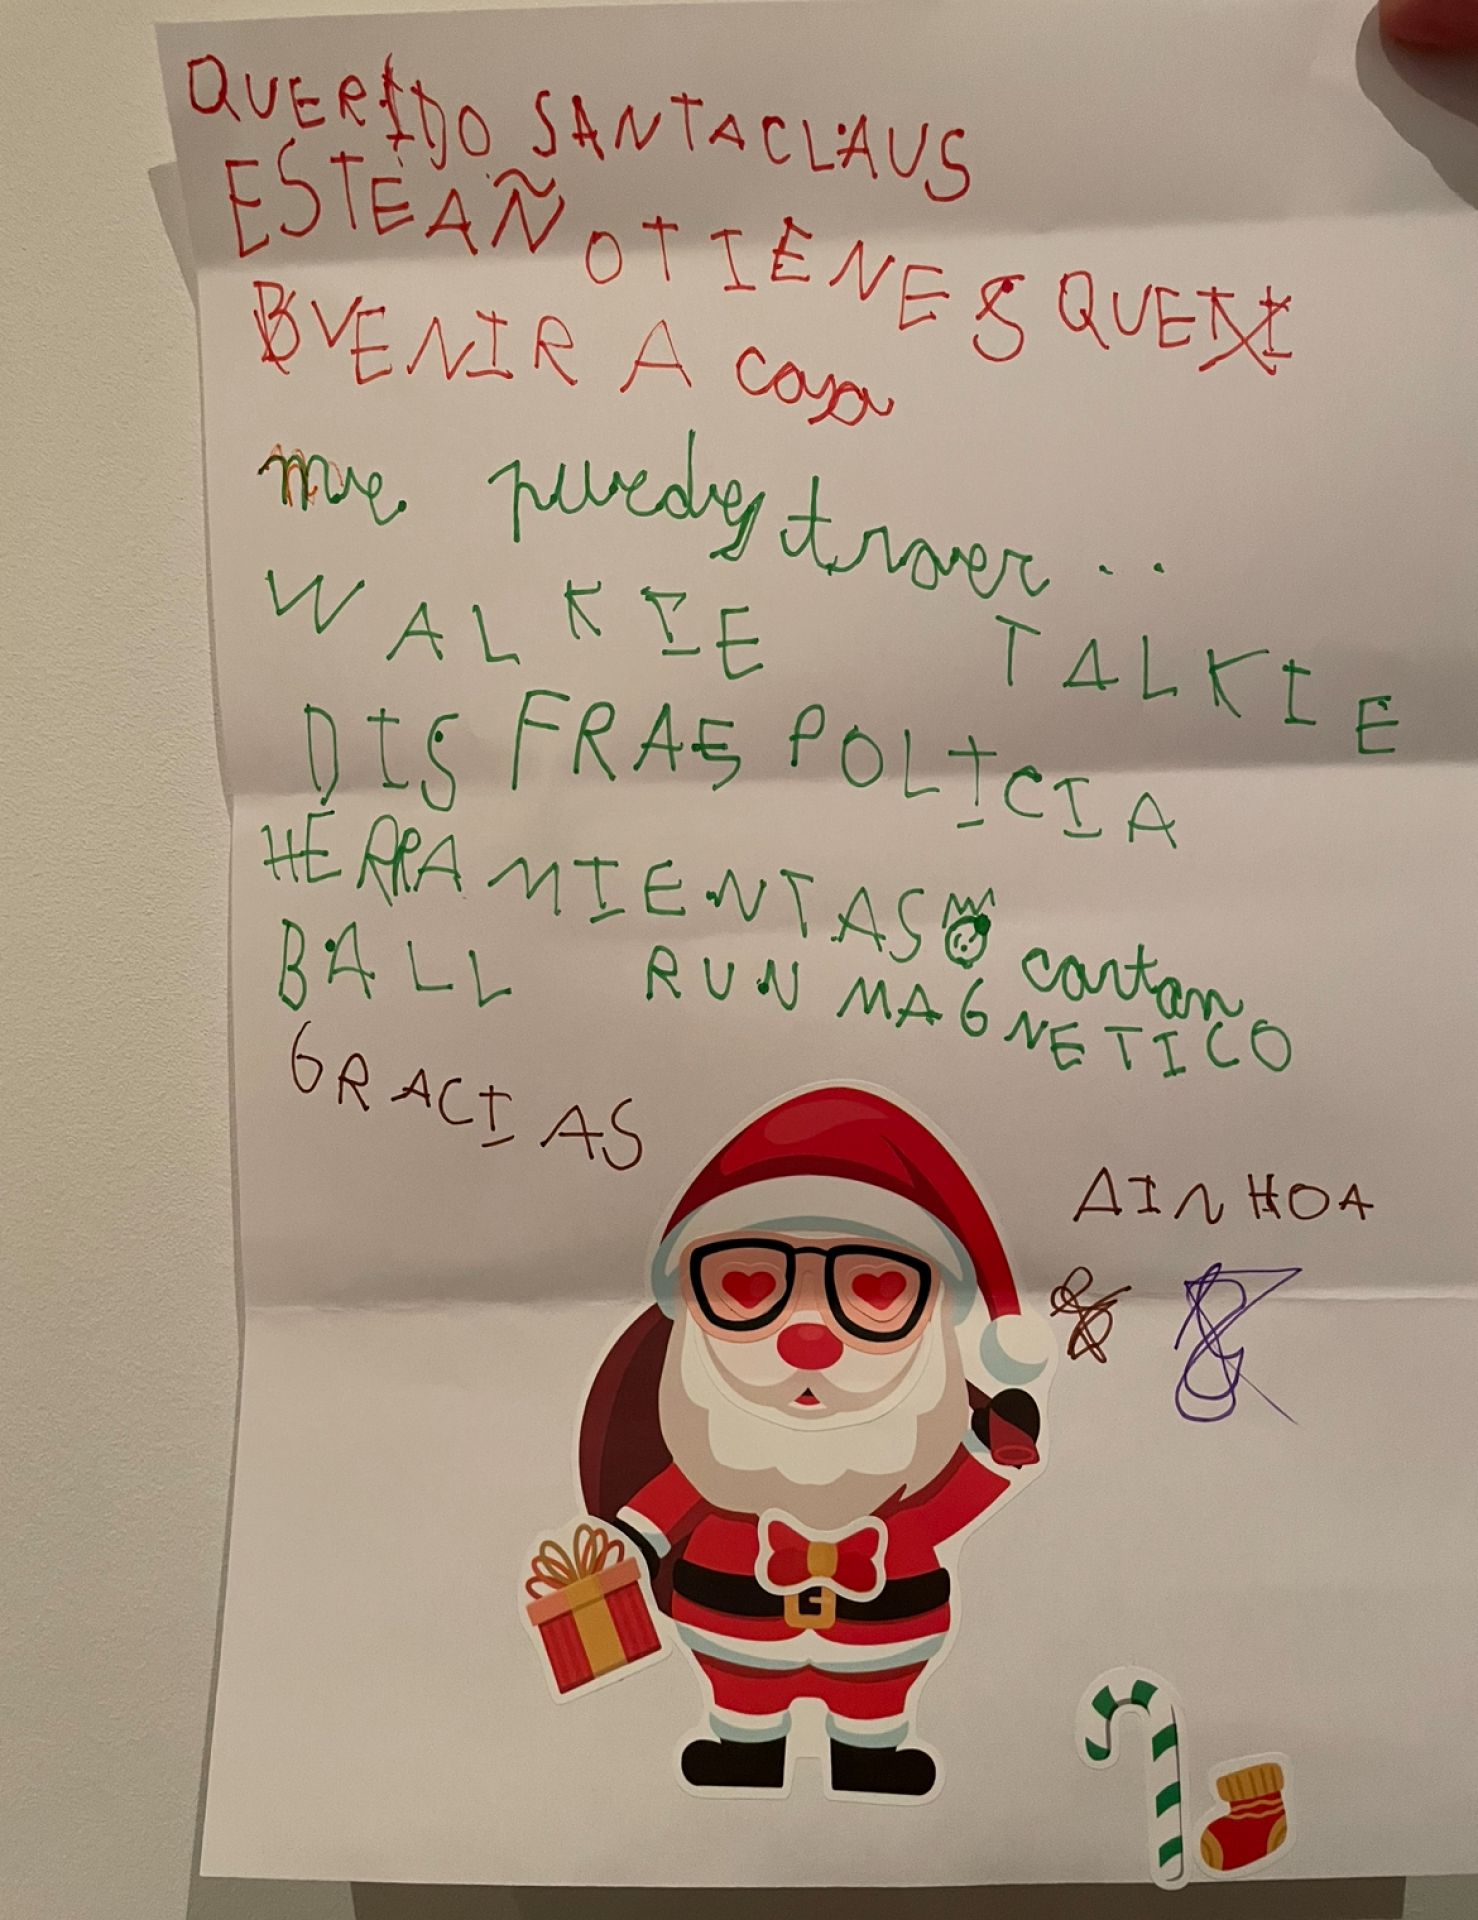 QUERIDO SANTACLAUS
ESTEAÑOTIENES QUE
VENIR A casa
me puedes traer...
WALKIE TALKIE
DISFRAS POLICIA
HERRAMIENTAS cartan
BALL RUN MAGNETICO
GRACIAS
AINHOA